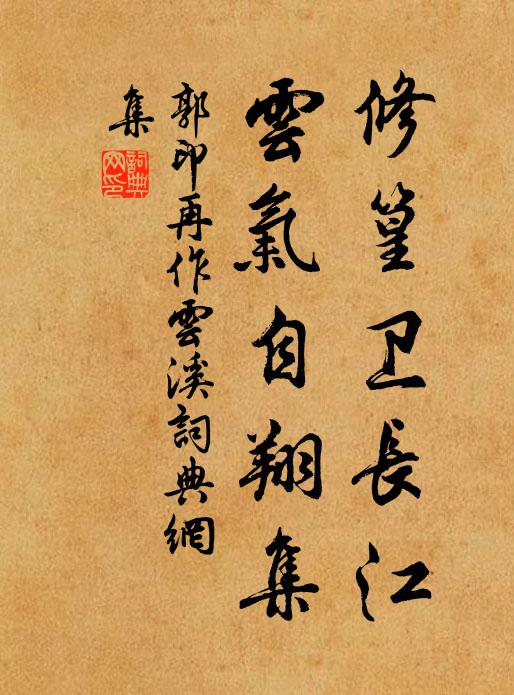 修篁卫長江
雲氣自翔集
郭印再作雲溪詞典網
集
詞典网印